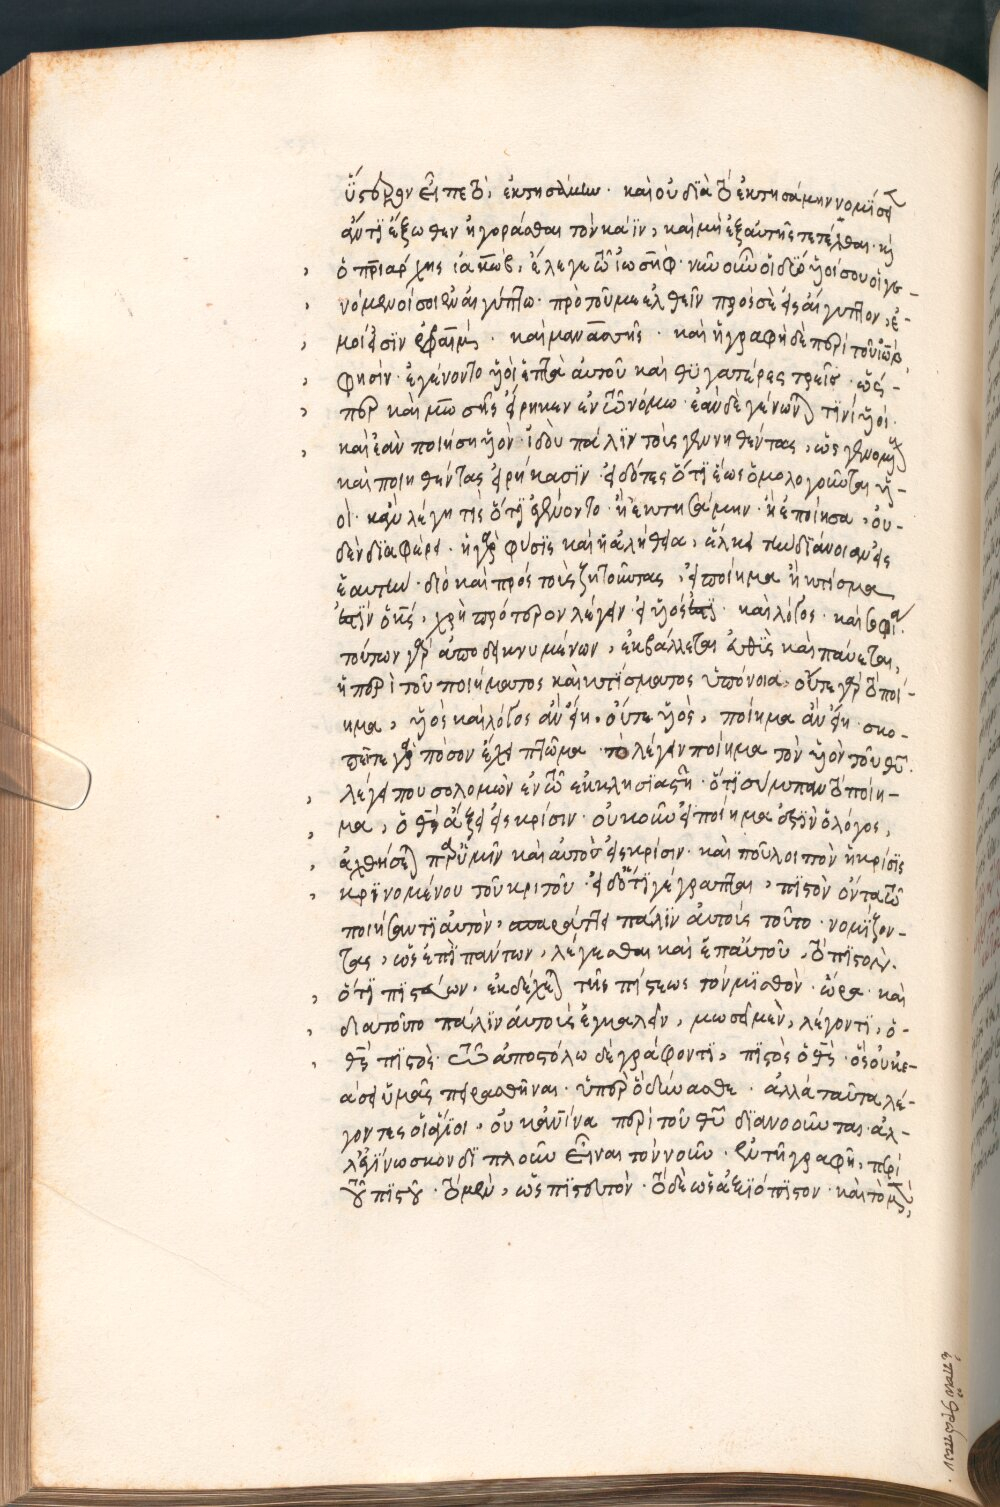 ὕστερον εἶπε τό, ἐκτησάμην· καὶ οὐ διὰ τὸ ἐκτησάμην νομίσει
αὐτὶ ἔξωθεν ἠγοράσθαι τὸν κάϊν, καὶ μὴ ἐξ αὐτῆς τετέχθαι· κὶ
ὁ πριάρχης ἰακὼβ, ἔλεγε τῶ ἰωσὴφ· νῦν οὖν οἱ δύο ὑοί σου οἱ γε-
νόμενοί σοι ἐν αἰγύπτω· πρὸ τοῦ με ἐλθεῖν πρός σὲ εἰς αἴγυπτον, ἐ-
μοί εἰσϊν ἐφραὶμ· καὶ μανασσῆς· καὶ ἡ γραφὴ δὲ περὶ τοῦ ἰὼβ
φησϊν· ἐγένοντο ὑοὶ ἑπτὰ αὐτοῦ καὶ θυγατέρες τρεῖς· ὥς-
περ καὶ μωσῆς εἴρηκεν ἐν τῶ νόμω· ἐὰν δὲ γένωνται τϊνὶ ὑοί·
καὶ ἐὰν ποιήση ὑὸν· ἰδοὺ πάλϊν τοὺς γεννηθέντας, ὡς γενομ
καὶ ποιηθέντας εἰρήκασϊν· εἰδότες ὅτϊ ἕως ὁμολογοῦνται ὑ-
οὶ· κἂν λέγη τὶς ὅτϊ ἐγένοντο· ἢ ἐκτησάμην· ἢ ἐποίησα, οὐ-
δὲν διαφέρει· ἡ γὰρ φύσϊς καὶ ἡ ἀλήθεια, ἕλκει τὴν διάνοιαν εἰς
ἑαυτήν· διὸ καὶ πρὸς τοὺς ζητοῦντας, εἰ ποίημα ἢ κτίσμα
ἐστϊν ὁ κς, χρὴ πρότερον λέγειν· εἰ ὑός ἐστϊ· καὶ λόγος· καὶ σοφία·
τούτων γὰρ ἀποδεικνυμένων, ἐκβάλλεται εὐθὺς καὶ παύεται,
ἡ περὶ τοῦ ποιήματος καὶ κτίσματος ὑπόνοια, οὔτε γὰρ τὸ ποί-
ημα, ὑὸς καὶ λόγος ἂν εἴη, οὔτε ὑὸς, ποίημα ἂν εἴη· σκο-
πεῖτε γὰρ πόσον ἔχει πτῶμα· τὸ λέγειν ποίημα τὸν ὑὸν τοῦ θυ·
λέγει που σολομὼν ἐν τῶ εκκλησϊαστῆ· ὅτϊ σύμπαν τὸ ποίη-
μα, ὁ θς ἄξει εἰς κρίσιν· οὐκοῦν εἰ ποίημα ἐστϊν ὁ λόγος,
ἀχθήσεται παρ' ὑμῖν καὶ αὐτὸς εἰς κρίσιν· καὶ ποῦ λοιπὸν ἡ κρίσϊς
κρϊνομένου τοῦ κριτοῦ· εἰ δὲ ὅτϊ γέγραπται, πϊστὸν ὄντα τῶ
ποιήσαντϊ αὐτὸν, σπαράττει πάλϊν αὐτοὺς τοῦτο· νομίζον-
τας, ὡς ἐπϊ πάντων, λέγεσθαι καὶ ἐπ' αὐτοῦ, τὸ πϊστὸν.
ὅτϊ πϊστεύων, ἐκδέχεται τῆς πίστεως τὸν μϊσθὸν· ὥρα καὶ
διατοῦτο πάλϊν αὐτοὺς ἐγκαλεῖν, μωσεῖ μὲν, λέγοντϊ, ὁ
θς πϊστὸς· τῶ ἀποστόλω δὲ γράφοντϊ, πϊστὸς ὁ θς· ὃς οὐκ ἐ-
άσει ὑμᾶς πειρασθῆναι· ὑπὲρ ὃ δύνασθε· ἀλλὰ ταῦτα λέ-
γοντες οἱ ἅγϊοι, οὐκ ἀνθρώπϊνα περὶ τοῦ θυ δϊανοοῦνται· ἀλ-
λ' ἐγίνωσκον δϊπλοῦν εἶναι τὸν νοῦν· ἐν τῆ γραφῆ, περὶ
τοῦ πϊστοῦ· τὸ μὲν, ὡς πϊστεῦον· τὸ δὲ ὡς ἀξϊόπϊστον· καὶ τὸ μὲν,